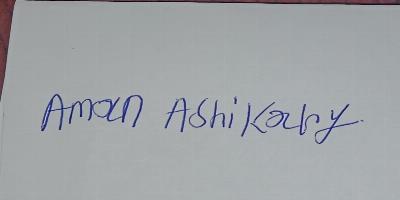 Aman Ashikary